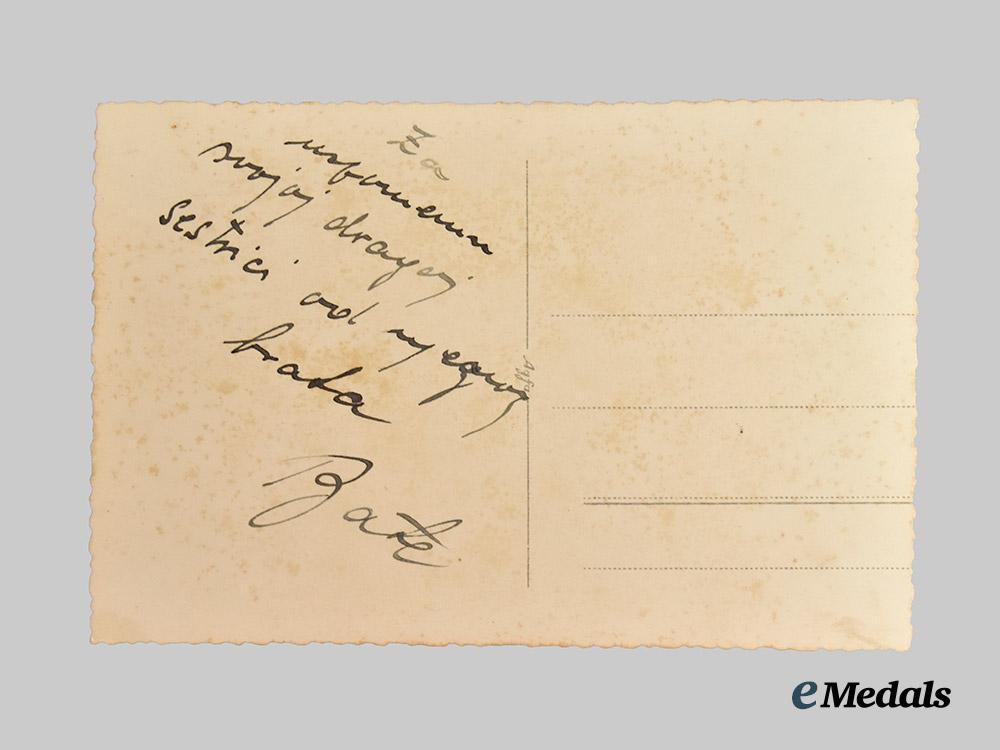 Za
uspomenu
svojoj dragoj
sestrici od njezinog
brata
Bate
Agfa
eMedals